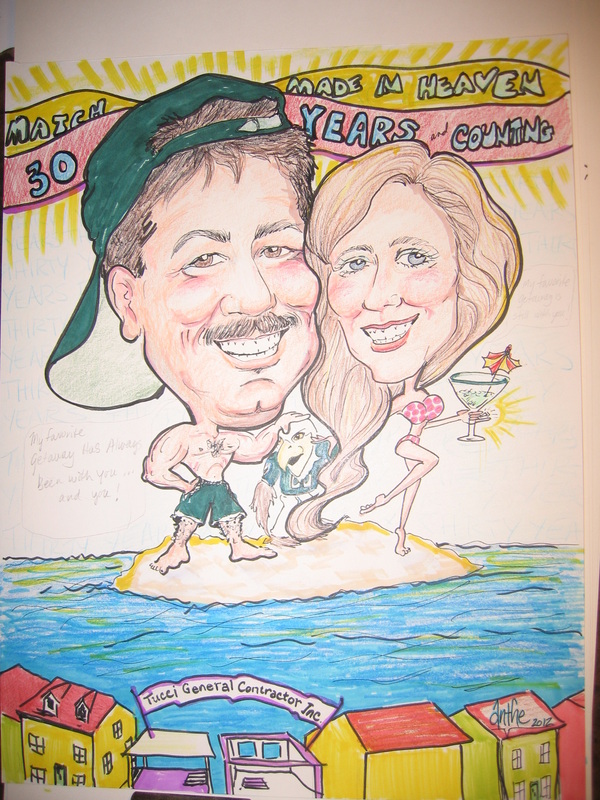 MATCH MADE IN HEAVEN
30 YEARS and COUNTING
My favorite
Getaway Has Always
been with you ...
and you!
Tucci General Contractor Inc.
Anthe
2012